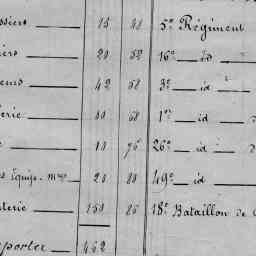 ssiers 15 40 5e Régiment
iers 20 52 16e id
iens 42 58 3e id
erie 80 68 1er id
10 76 26e id
s Équip. mres 20 80 49e id
terie 150 86 18e Bataillon de
porter 462